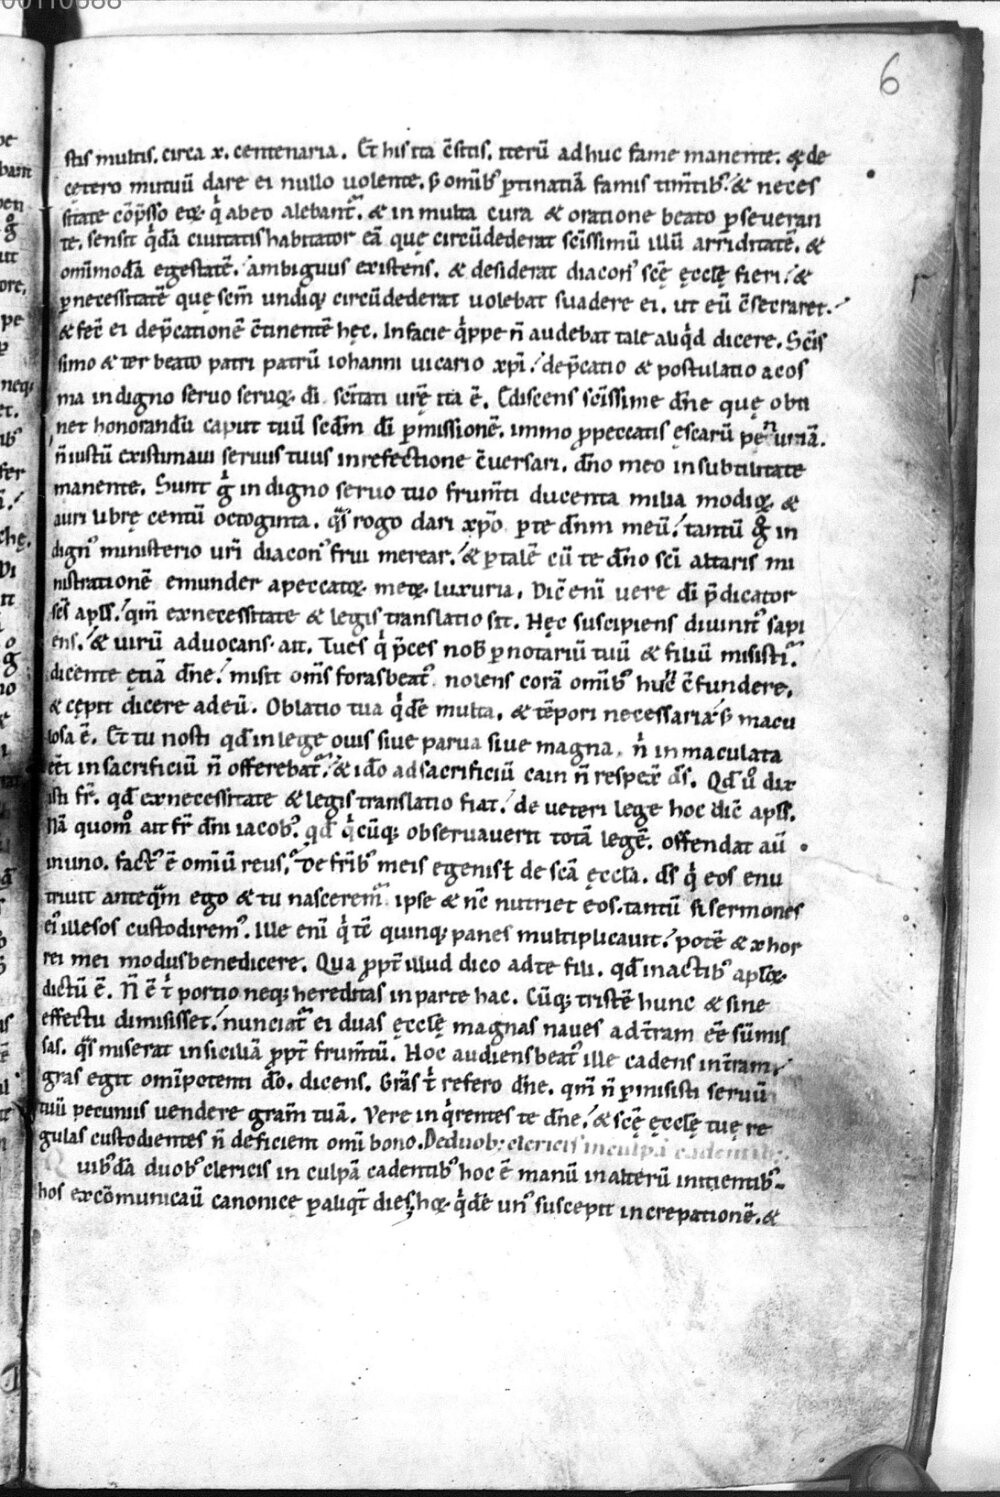 6
stis multis. circa x. centenaria. Et his ita c̄stitis. iterū ad huc fame manente. & de
cetero mutuū dare ei nullo uolente. s; omīb; ꝑtinatiā famis tim̄tib;. & neces
sitate cōp̄sso eoꝝ q̇ ab eo alebant᷑. & in multa cura & oratione beato ꝑseueran
te. sensit q̇dā ciuitatis habitator eā quę circūdederat sc̄issimū illū arriditatē. &
omīmodā egestatē. ambiguus existens. & desiderat diacon᷒ sc̄ę ęcclę fieri. &
ꝑ necessitatē quę sc̄m undiq; circūdederat uolebat suadere ei. ut eū c̄secraret.
& fec̄ ei dep̄cationē c̄tinentē hęc. In facie q̇ppe n̄ audebat tale aliq̇d dicere. Sc̄is
simo & ter beato patri patrū iohanni uicario xp̄i. dep̄catio & postulatio a cos
ma indigno seruo seruoꝝ di. sc̄itati urę̄ ita ē. Cdiscens sc̄issime dn̄e quę obti
net honorandū caput tuū scdm̄ dī ꝑmissionē. immo ꝓ peccatis escarū penuriā.
n̄ iustū existimaui seruus tuus in refectione c̄uersari. dn̄o meo in subtilitate
manente. Sunt g̊ indigno seruo tuo frum̄ti ducenta milia modioꝝ &
auri librę centū octoginta. q̄s rogo dari xp̄o ꝑ te dn̄m meū. tantū g̊ in
dign᷒ ministerio uri diacon᷒ frui merear. & ꝑ talē cū te dn̄o sc̄i altaris mi
nistrationē emunder a peccatoꝝ meoꝝ luxuria. Dic̄ enī uere dī p̄dicator
sc̄s apls̄. qm̄ ex necessitate & legis translatio fit. Hęc suscipiens diuinit᷒ sapi
ens. & uirū aduocans. ait. Tu es q̇ p̄ces nob̄ ꝑ notariū tuū & filiū misisti.
dicente etiā dn̄e. misit oms̄ foras beat᷒ nolens corā omīb; huc c̄fundere.
& cępit dicere ad eū. Oblatio tua q̇dē multa. & tēpori necessaria. s; macu
losa ē. Et tu nosti qd̄ in lege ouis siue parua siue magna. n̄ inmaculata
eēt in sacrificiū n̄ offerebat᷑. & idō ad sacrificiū cain n̄ respex̄ ds̄. Qd̄ ů dix
isti fr̄. qd̄ ex necessitate & legis translatio fiat. de ueteri lege hoc dic̄ apls̄.
Nā quom̊ ait fr̄ dn̄i iacob᷒. qd̄ q̇cūq; obseruauerit totā legē. offendat aū
in uno. fact᷒ ē omiū reus. De fr̄ib; meis egenis & de sc̄a ęccla. ds̄ q̇ eos enu
triuit anteq̄m ego & tu nascerem᷒ ipse & nc̄ nutriet eos. tantū si sermones
ei᷒ illesos custodirem᷒. Ille enī q̇ tē quinq; panes multiplicauit. potē & x hor
rei mei modus benedicere. Qua ꝓpt̄ illud dico ad te fili. qd̄ in actib; aplōꝝ
dictū ē. N̄ ē t̄ portio neq; hereditas in parte hac. Cūq; tristē hunc & sine
effectu dimisisset. nunciat᷑ ei duas ęcclę magnas naues ad tr̄am eē sūmis
sas. q̄s miserat in siciliā ꝓpt̄ frum̄tū. Hoc audiens beat᷒ ille cadens in tr̄am
gras egit omīpotenti dō. dicens. Grās t̄ refero dn̄e. qm̄ n̄ ꝑmisisti seruū
tuū pecuniis uendere gram̄ tuā. Vere inq̇rentes te dn̄e. & sc̄ę ęcclę tuę re
gulas custodientes n̄ deficient omī bono. De duob; clericis in culpa cadentib;.
Quib᷒dā duob; clericis in culpā cadentib; hoc ē manū in alterū initientib;
hos excōmunicauū canonice ꝑ aliqt̄ dies. hoꝝ q̇dē un᷒ suscepit increpationē. &